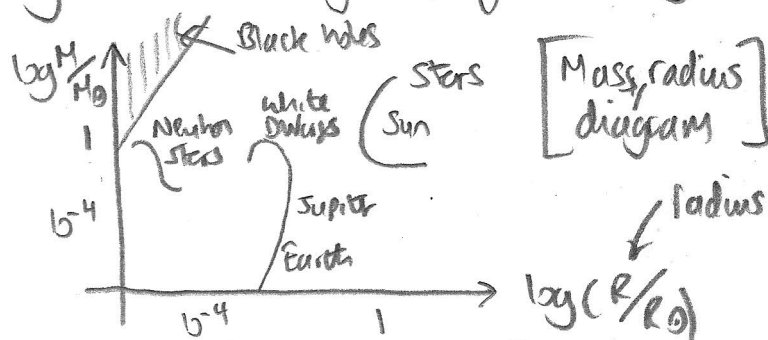 Black holes
log M/M⊙
Stars
[Mass, radius
diagram]
1
Neutron
Stars
White
Dwarfs
Sun
10⁻⁴
Jupiter
Earth
radius
10⁻⁴
1
log(R/R⊙)